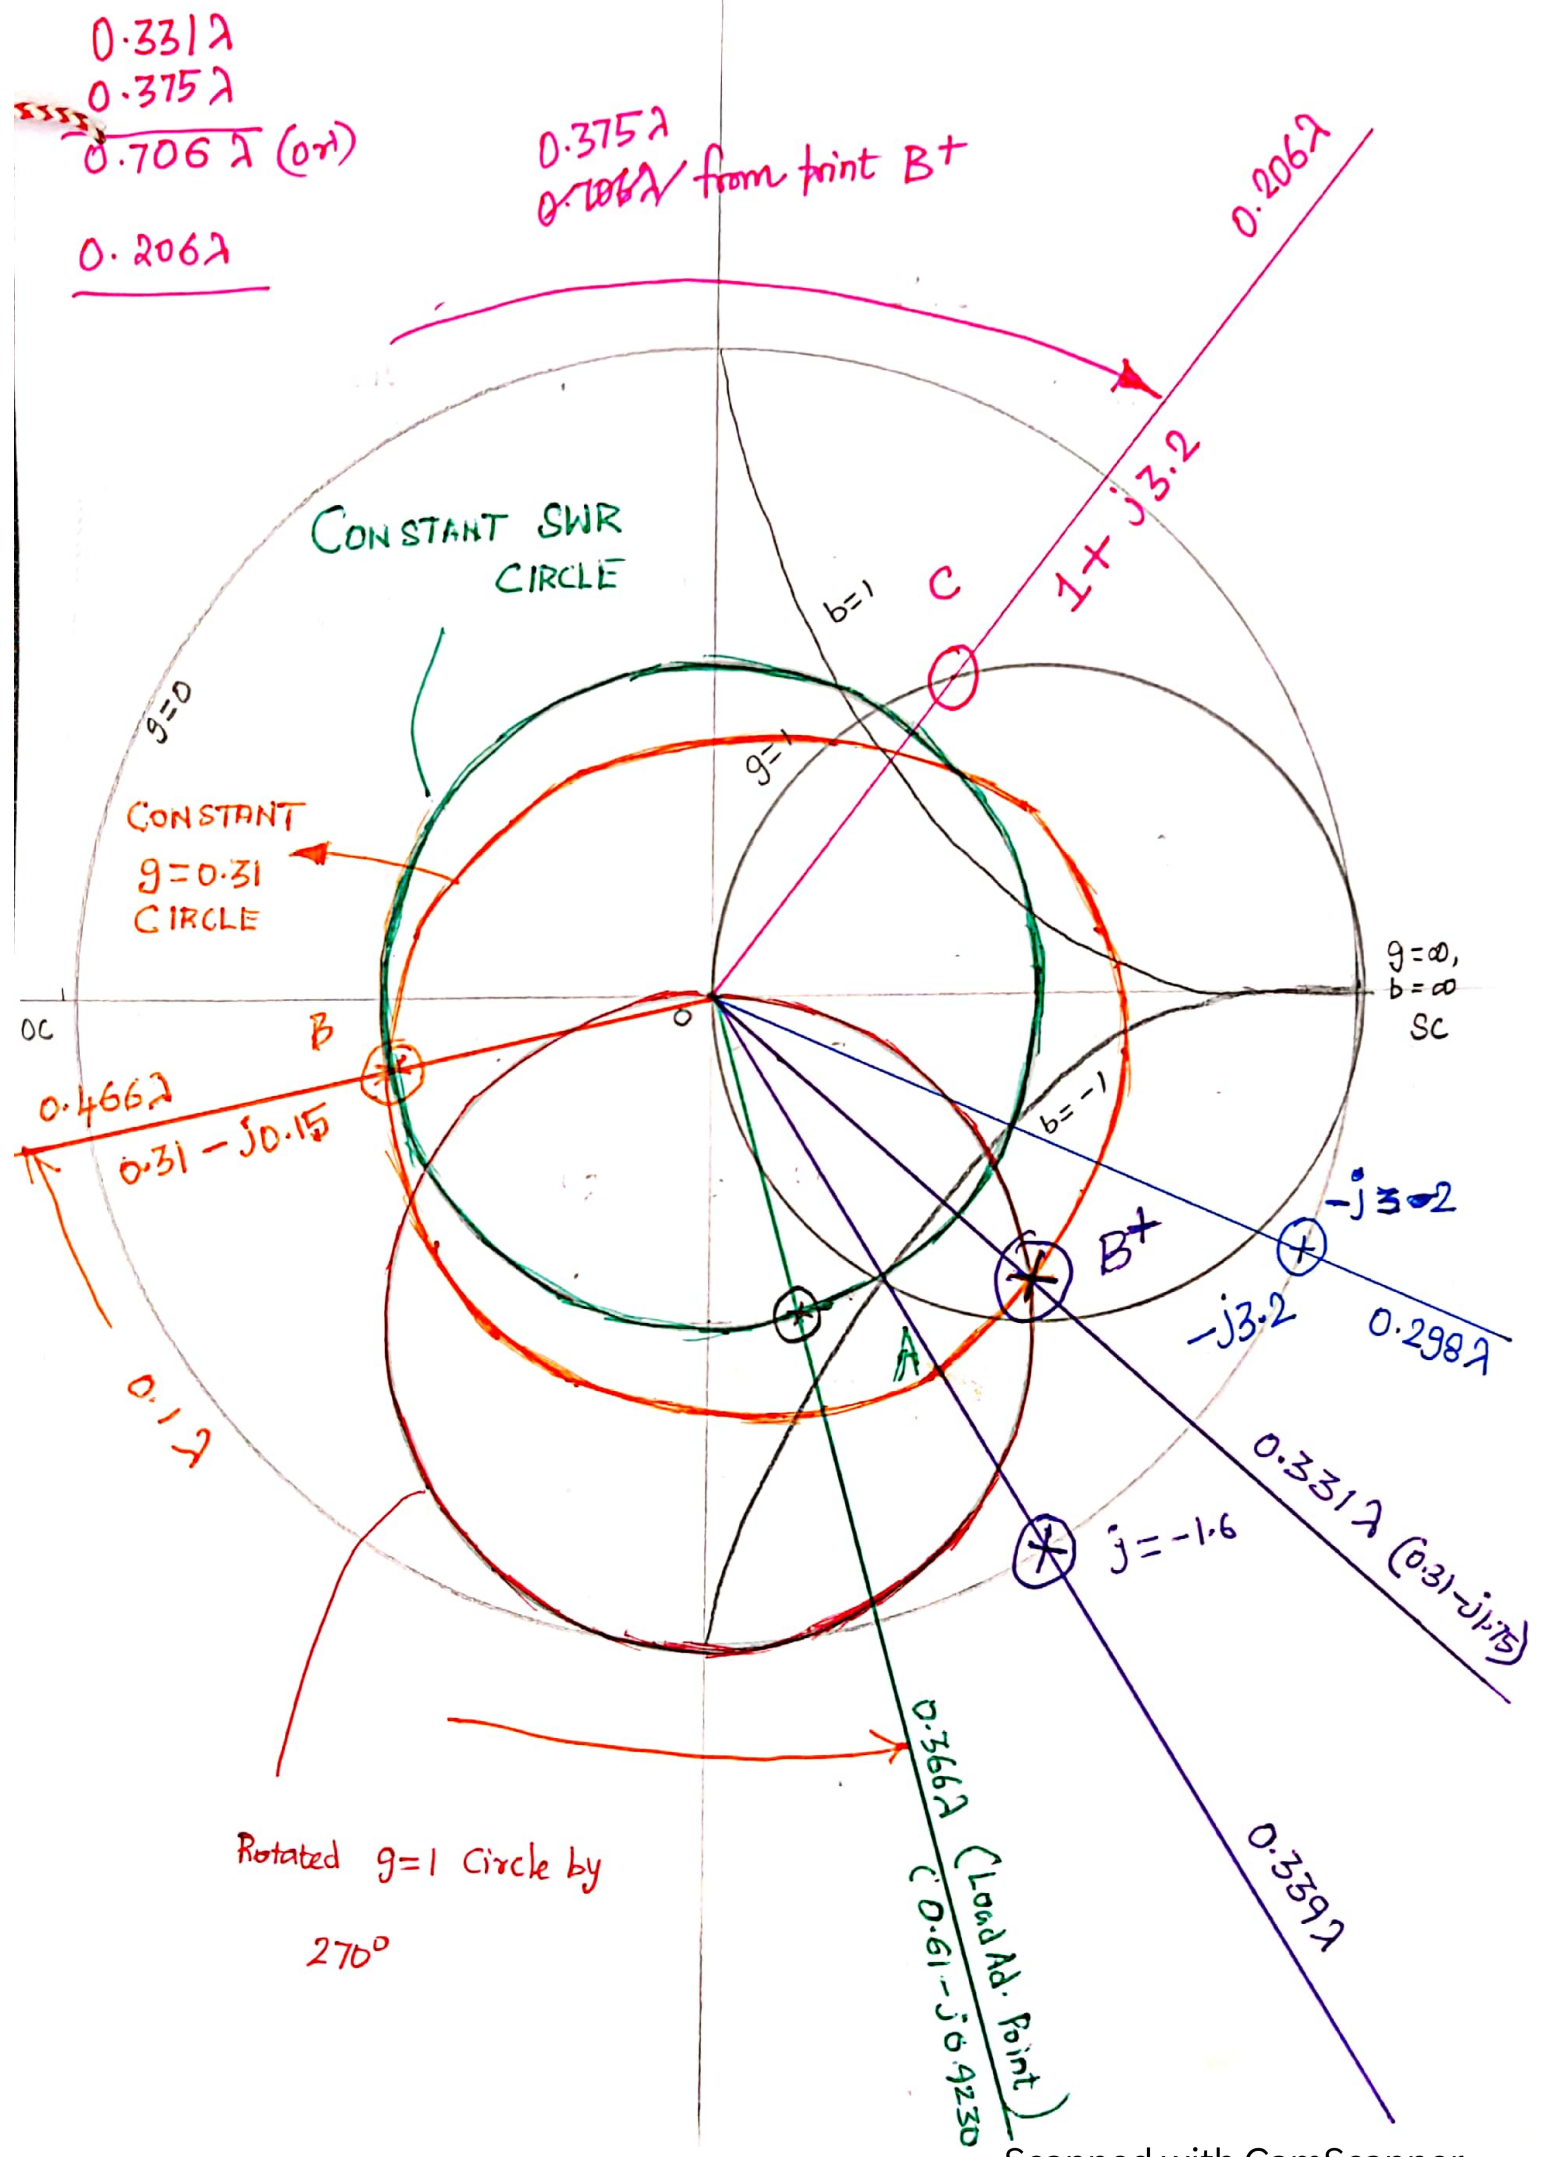 0.331λ
0.375λ
0.706λ (or)
0.206λ
0.375λ
from point B+
0.206λ
1+j3.2
C
CONSTANT SWR
CIRCLE
b=1
g=0
g=1
CONSTANT
g=0.31
CIRCLE
g=∞,
b=∞
SC
OC
O
B
0.466λ
0.31-j0.15
b=-1
-j3.2
B+
-j3.2
0.298λ
A
0.1λ
j=-1.6
0.331λ (0.31-j1.75)
0.339λ
0.366λ (Load Ad. Point)
(0.61-j0.9230
Rotated g=1 Circle by
270°
Scanned with CamScanner